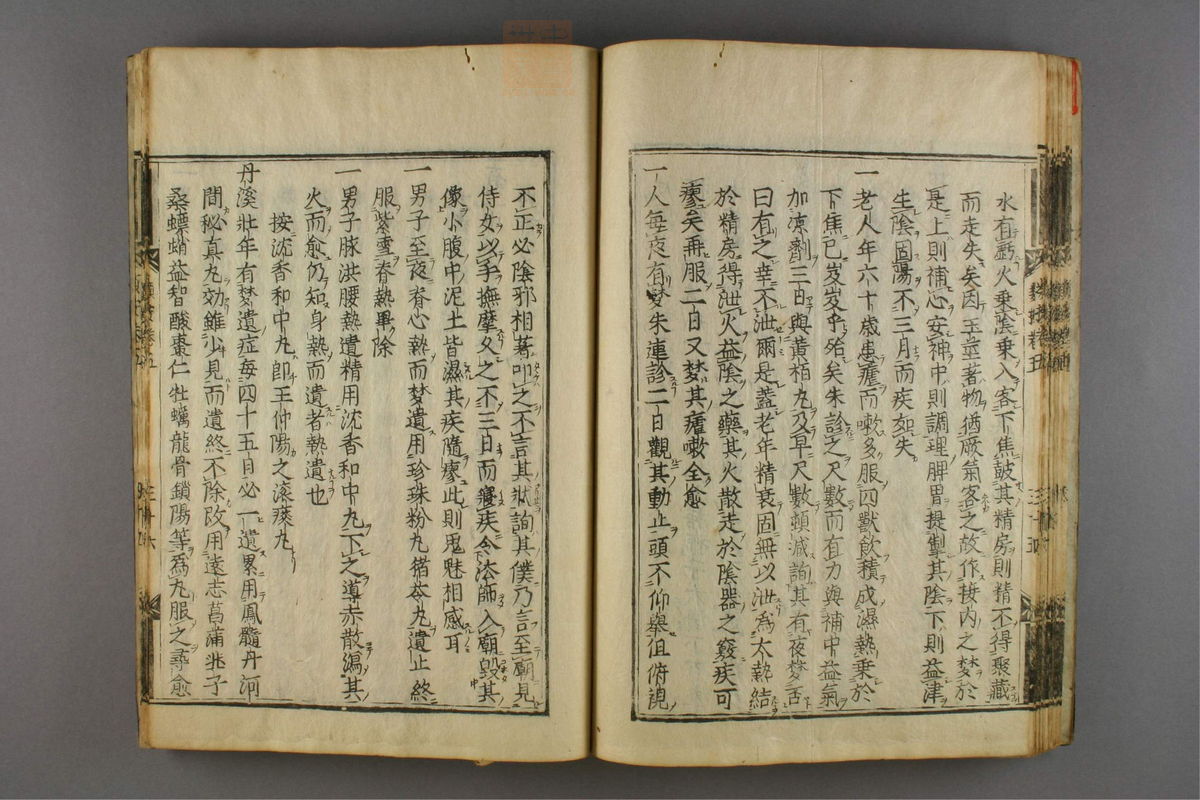 水有虧火乗陰乗入客下焦皷其精房則精不得聚藏
而走失矣因玉莖著物猶厥氣客之故作接内之夢於
是上則補心安神中則調理脾胃提掣其陰下則益津
生陰固陽不三月而疾如失
一老人年六十歲患瘧而嗽多服四獸飲積成濕熱乗於
下焦已岌岌乎殆矣朱診之尺數而有力與補中益氣
加凉劑三日與黄栢丸及早尺數頓减詢其有夜夢否
曰有之幸不泄爾是盖老年精衰固無以泄為太熱結
於精房得泄火益陰之藥其火散走於陰器之竅疾可
瘳矣再服二日又夢其瘧嗽全愈
一人每夜有夢朱連診二日觀其動止頭不仰舉但俯視
不正必陰邪相著叩之不言其狀詢其僕乃言至廟見
侍女以手撫摩久之不三日而寢疾令法師入廟毀其
像小腹中泥土皆濕其疾隨瘳此則鬼魅相感耳
一男子至夜脊心熱而夢遺用珍珠粉丸猪苓丸遺止終
服紫雪脊熱畢除
一男子脉洪腰熱遺精用沈香和中丸下之導赤散瀉其
火而愈仍知身熱而遺者熱遺也
按沈香和中丸即王仲陽之滚痰丸
丹溪壯年有夢遺症每四十五日必一遺累用鳳髓丹河
間秘真丸効雖少見而遺終不除改用遠志菖蒲韭子
桑螵蛸益智酸棗仁牡蠣龍骨鎖陽等為丸服之尋愈